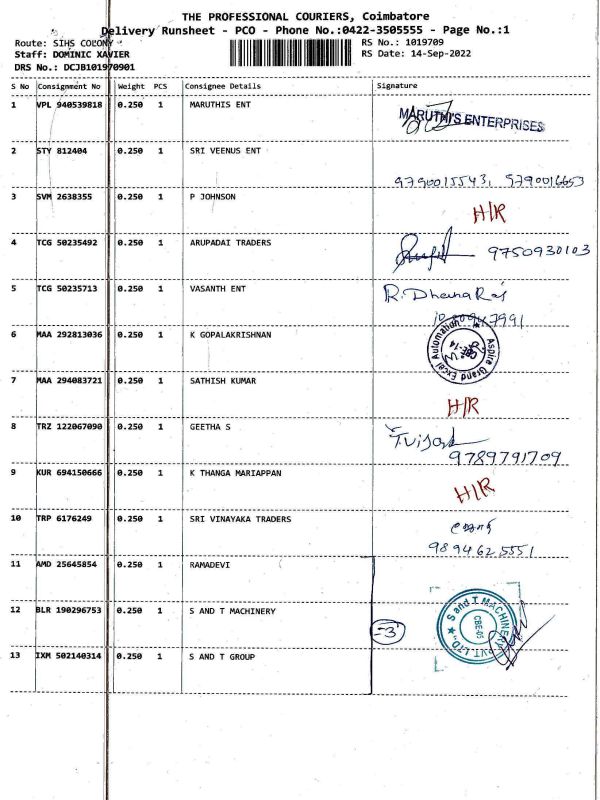 THE PROFESSIONAL COURIERS, Coimbatore
Delivery Runsheet - PCO - Phone No.:0422-3505555 - Page No.:1
Route: SIHS COLONY
RS No.: 1019709
Staff: DOMINIC XAVIER
RS Date: 14-Sep-2022
DRS No.: DCJB101970901
S No Consignment No Weight PCS Consignee Details Signature
1 VPL 940539818 0.250 1 MARUTHIS ENT
MARUTHI'S ENTERPRISES
2 STY 812404 0.250 1 SRI VEENUS ENT
9790015543, 9790016653
3 SVM 2638355 0.250 1 P JOHNSON
H/R
4 TCG 50235492 0.250 1 ARUPADAI TRADERS
9750930103
5 TCG 50235713 0.250 1 VASANTH ENT
R. Dhana Raj
6 MAA 292813036 0.250 1 K GOPALAKRISHNAN
Aspire Grand Excel Automation
7 MAA 294083721 0.250 1 SATHISH KUMAR
H/R
8 TRZ 122067090 0.250 1 GEETHA S
9789791709
9 KUR 694150666 0.250 1 K THANGA MARIAPPAN
H/R
10 TRP 6176249 0.250 1 SRI VINAYAKA TRADERS
9894625551
11 AMD 25645854 0.250 1 RAMADEVI
12 BLR 190296753 0.250 1 S AND T MACHINERY
=3
S and T MACHINERY PVT LTD.,
CBE-05
13 IXM 502140314 0.250 1 S AND T GROUP